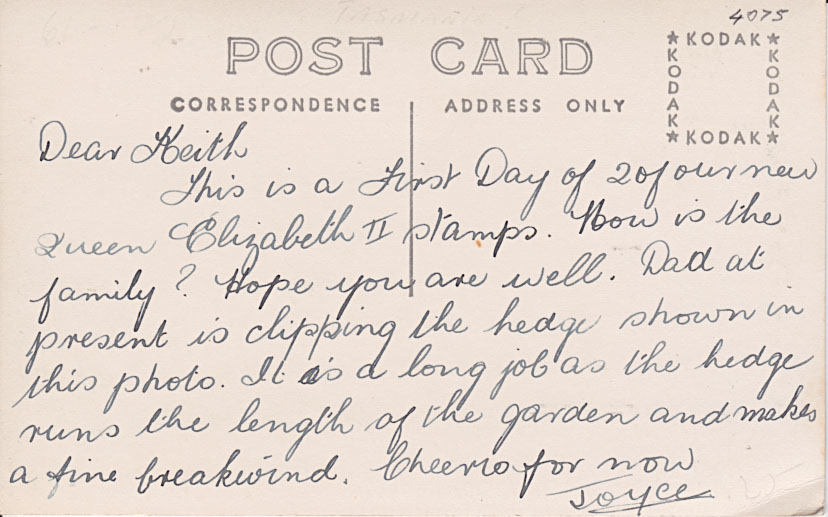 4075
POST CARD
CORRESPONDENCE ADDRESS ONLY
★ KODAK ★
KODAK
KODAK
★ KODAK ★
Dear Keith
This is a First Day of 2 of our new
Queen Elizabeth II stamps. How is the
family? Hope you are well. Dad at
present is clipping the hedge shown in
this photo. It is a long job as the hedge
runs the length of the garden and makes
a fine breakwind. Cheerio for now
Joyce